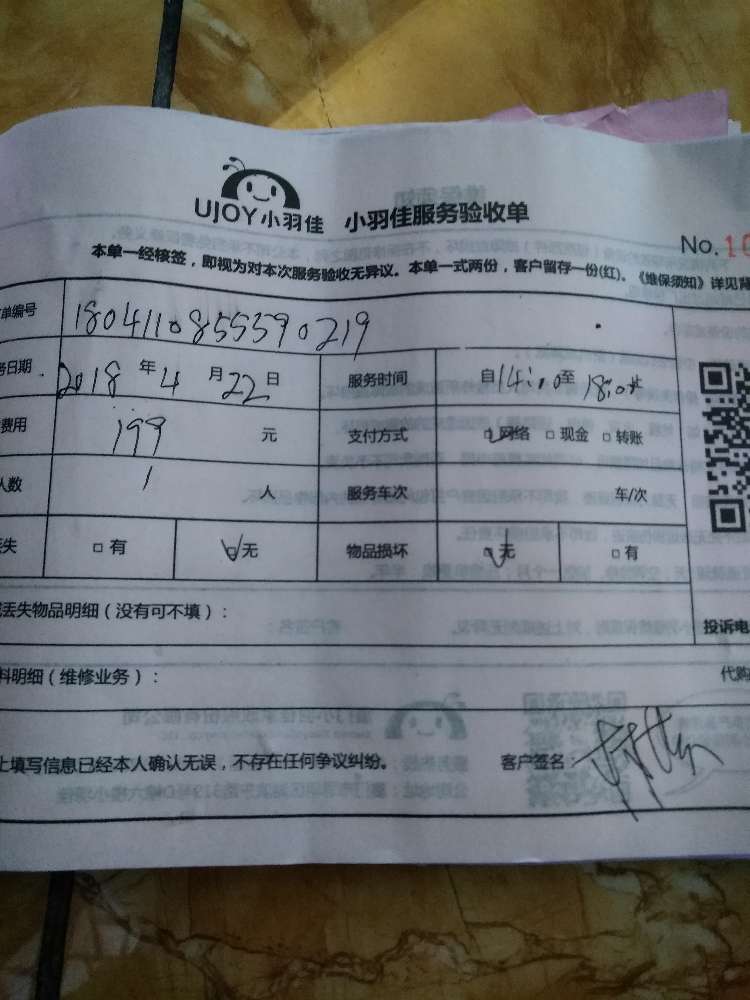 UJOY小羽佳 小羽佳服务验收单
No.10
本单一经核签，即视为对本次服务验收无异议。本单一式两份，客户留存一份(红)。《维保须知》详见背
单编号 1804110855590219
务日期 2018 年 4 月 22 日 服务时间 自14:00至18:00止
费用 199 元 支付方式 □网络 □现金 □转账
人数 1 人 服务车次 车/次
丢失 □有 □无 物品损坏 □无 □有
丢失物品明细（没有可不填）： 投诉电
料明细（维修业务）： 代购
上填写信息已经本人确认无误，不存在任何争议纠纷。 客户签名：